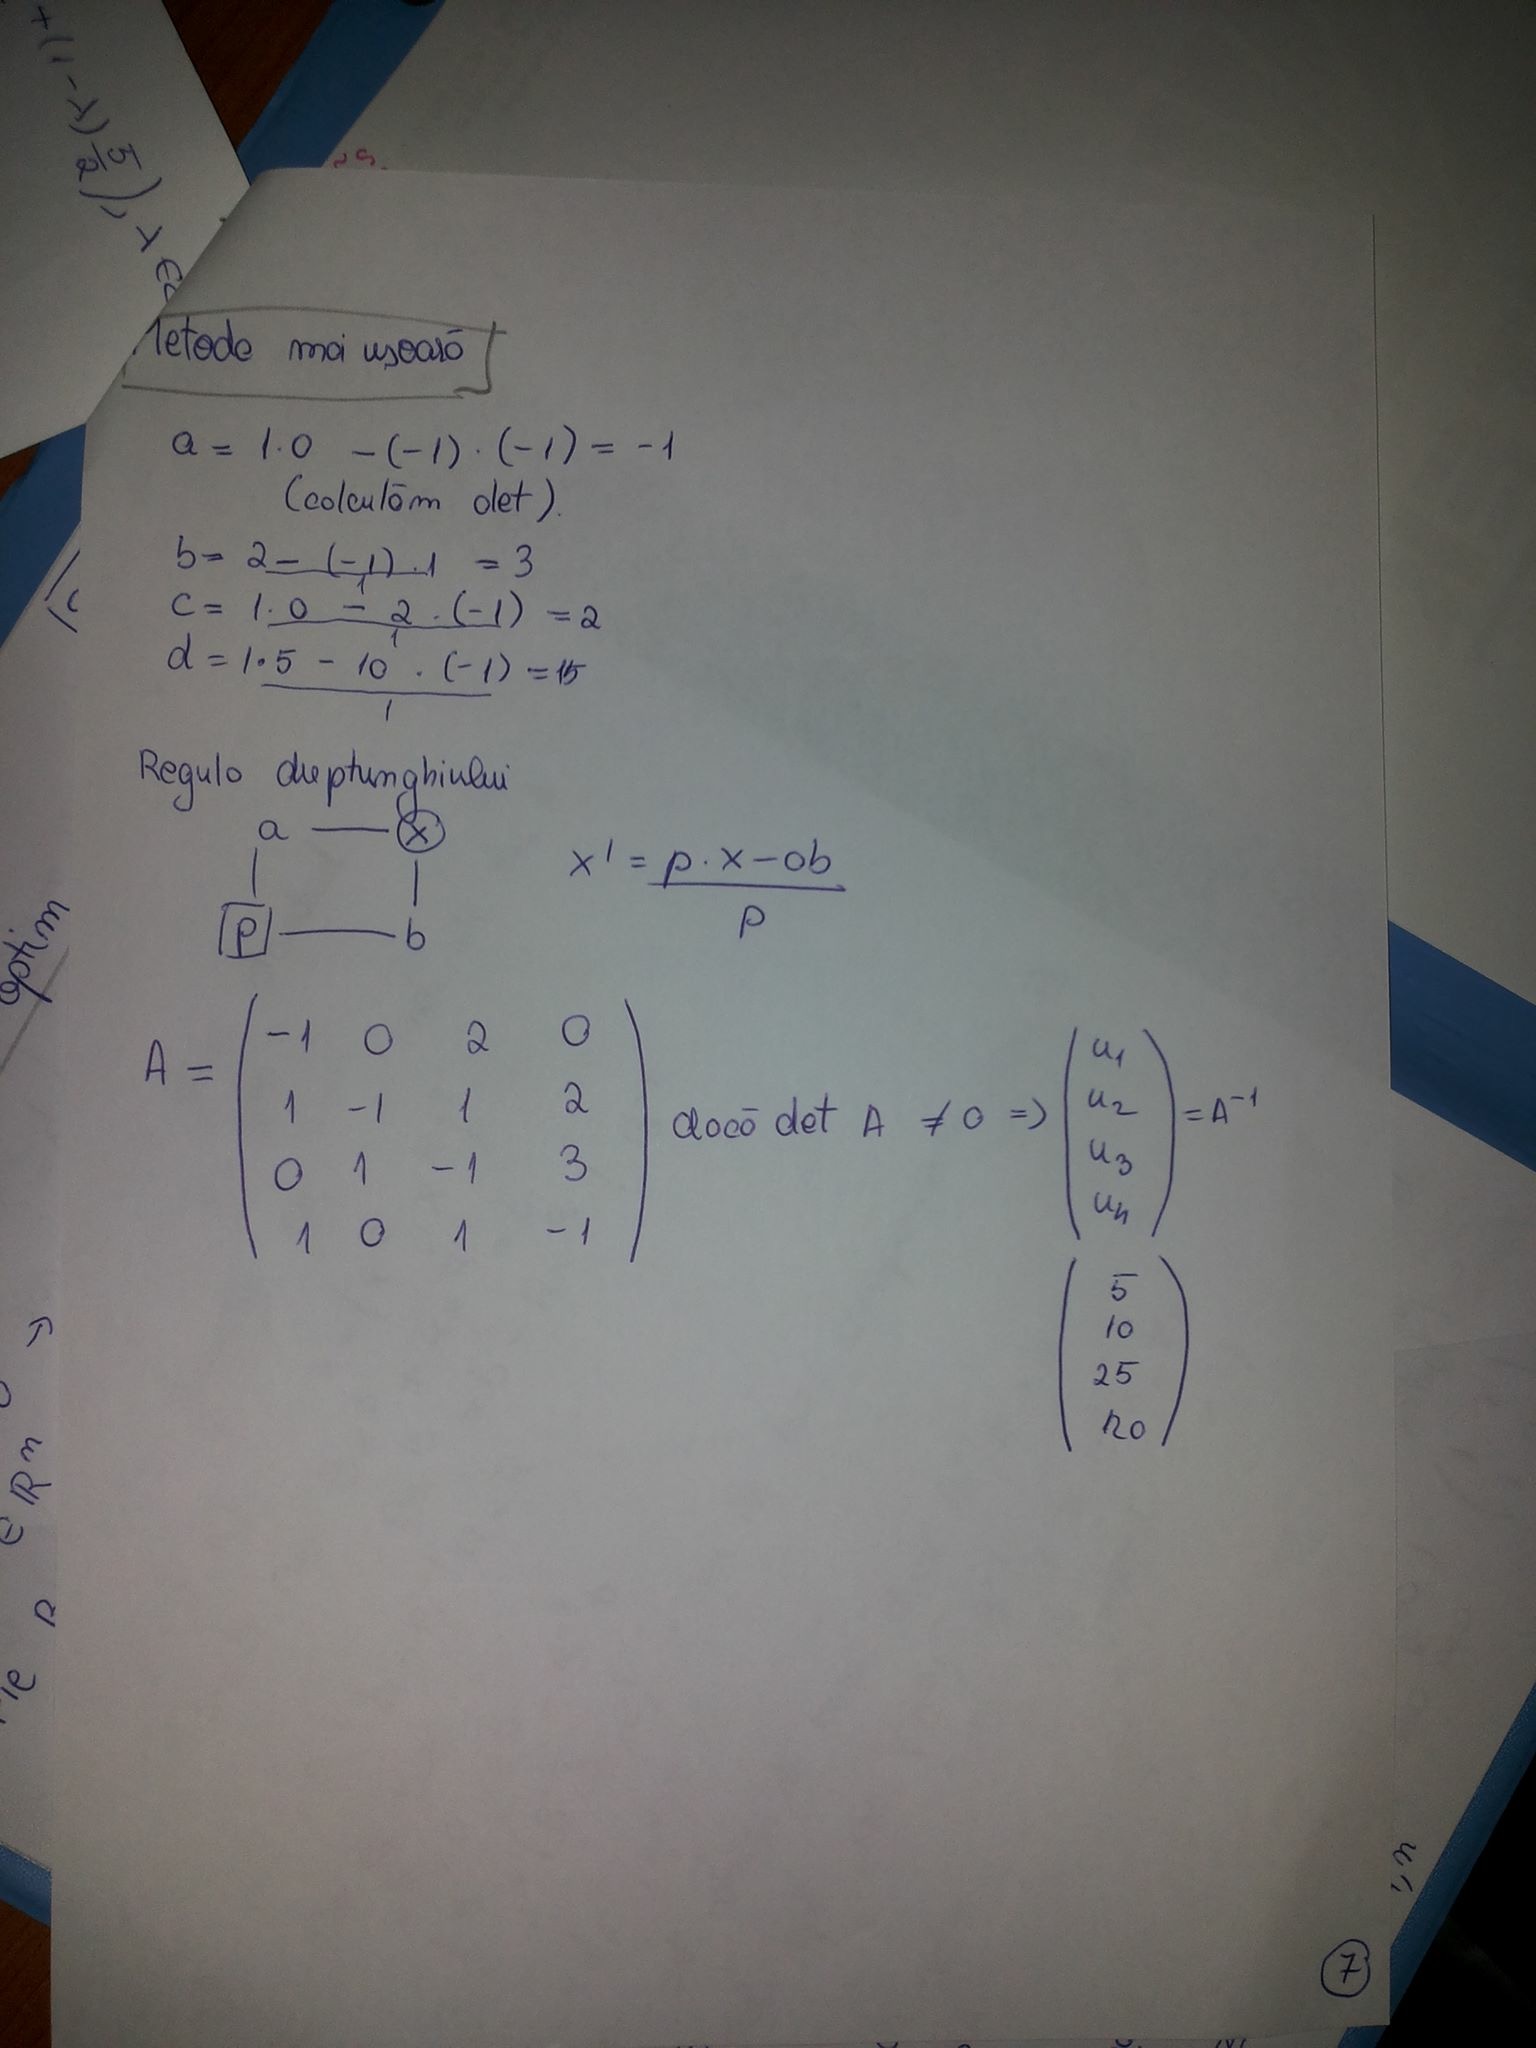 Metoda mai ușoară
a = 1·0 -(-1)·(-1) = -1
(calculăm det).
b = 2 - (-1)·1 = 3
1
c = 1·0 - 2·(-1) = 2
1
d = 1·5 - 10·(-1) = 15
1
Regula dreptunghiului
a — x
p — b
x' = p·x - ab
p
A = ( -1 0 2 0
1 -1 1 2
0 1 -1 3
1 0 1 -1 ) dacă det A ≠ 0 => ( u1
u2
u3
u4 ) = A^-1
( 5
10
25
120 )
7
optim